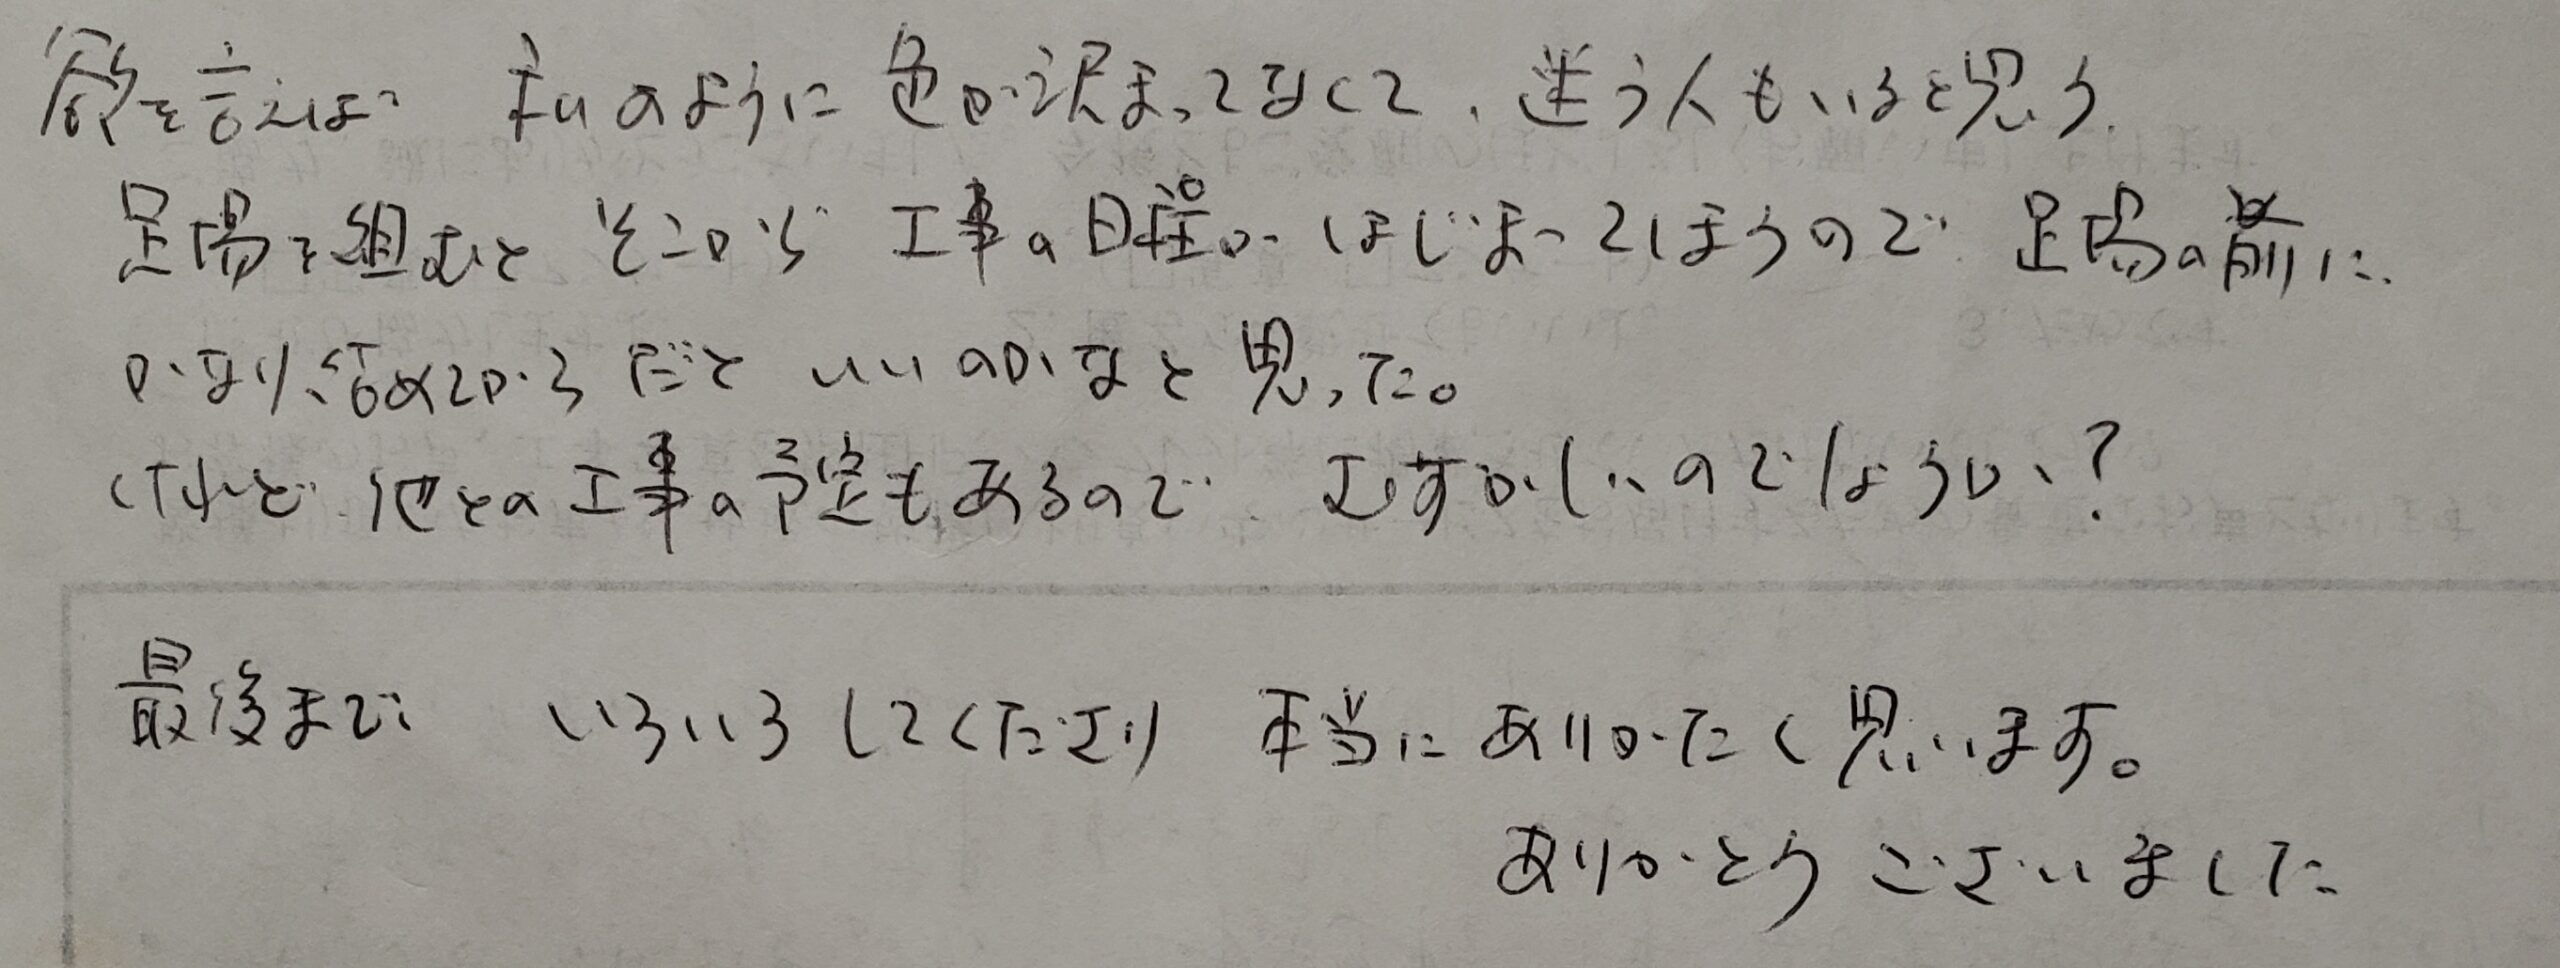 欲を言えば 私のように色が決まってなくて、迷う人もいると思う。
足場を組むと そこから 工事の日程がはじまってしまうので 足場の前に、
かなり、詰めてからだと いいのかなと思った。
けれど、他との工事の予定もあるので むずかしいのでしょうか?
最後まで いろいろしてくださり 本当にありがたく思います。
ありがとうございました